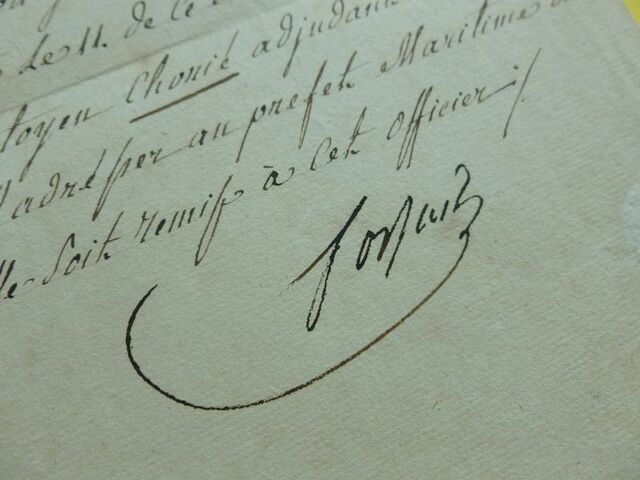 Le 11. de ce
toyen Chonié adjudan
adresser au prefet Maritime
lle soit remise à cet officier ./.
forfait